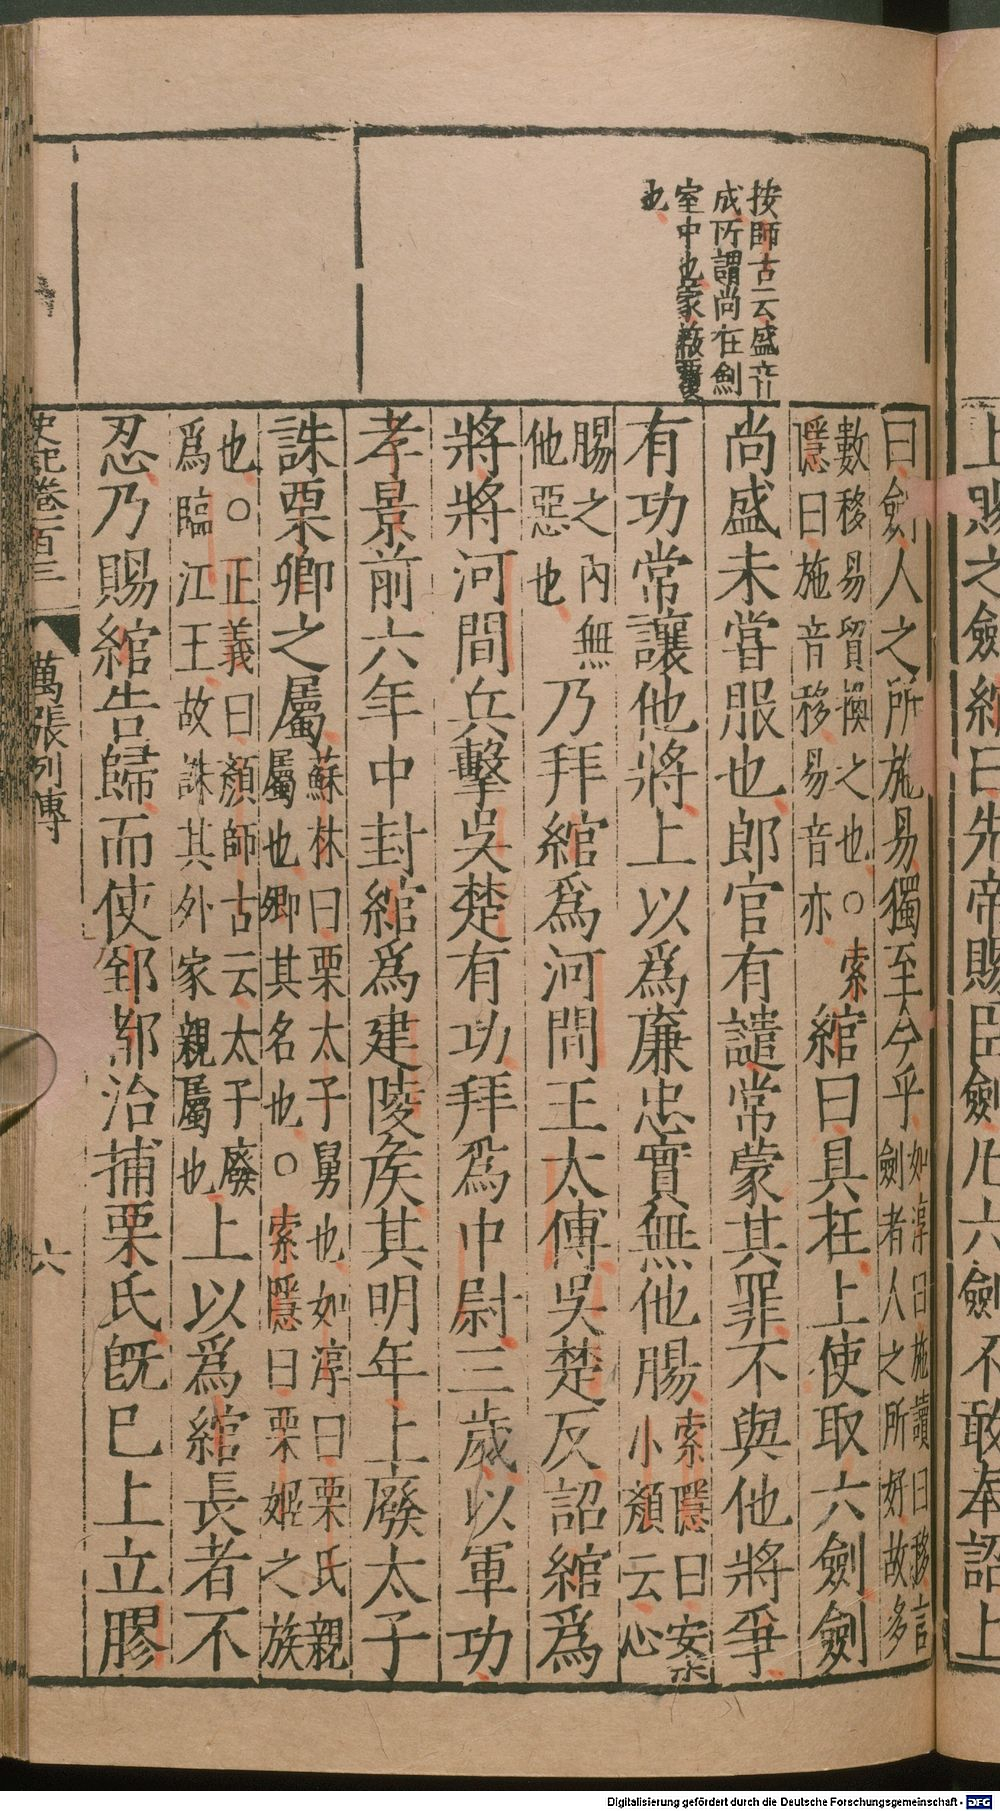 上賜之劍綰曰先帝賜臣劍凡六劍不敢奉詔上
按師古云盛音
成所謂尚在劍
室中也
也
曰劍人之所施易獨至今乎如淳曰施讀曰移言
劍者人之所好故多
數移易貿換之也○索
隱曰施音移易音亦
綰曰具在上使取六劍劍
尚盛未甞服也郎官有譴常蒙其罪不與他將爭
有功常讓他將上以爲廉忠實無他腸索隱曰安
小顏云心
賜之內無
他惡也
乃拜綰爲河間王太傅吳楚反詔綰爲
將將河間兵擊吳楚有功拜爲中尉三歲以軍功
孝景前六年中封綰爲建陵侯其明年上廢太子
誅栗卿之屬蘇林曰栗太子舅也如淳曰栗氏親
屬也卿其名也○索隱曰栗姬之族
也○正義曰顏師古云太子廢
爲臨江王故誅其外家親屬也
上以爲綰長者不
忍乃賜綰告歸而使郅都治捕栗氏旣巳上立膠
史記卷一百三 萬張列傳 六
Digitalisierung gefördert durch die Deutsche Forschungsgemeinschaft - DFG